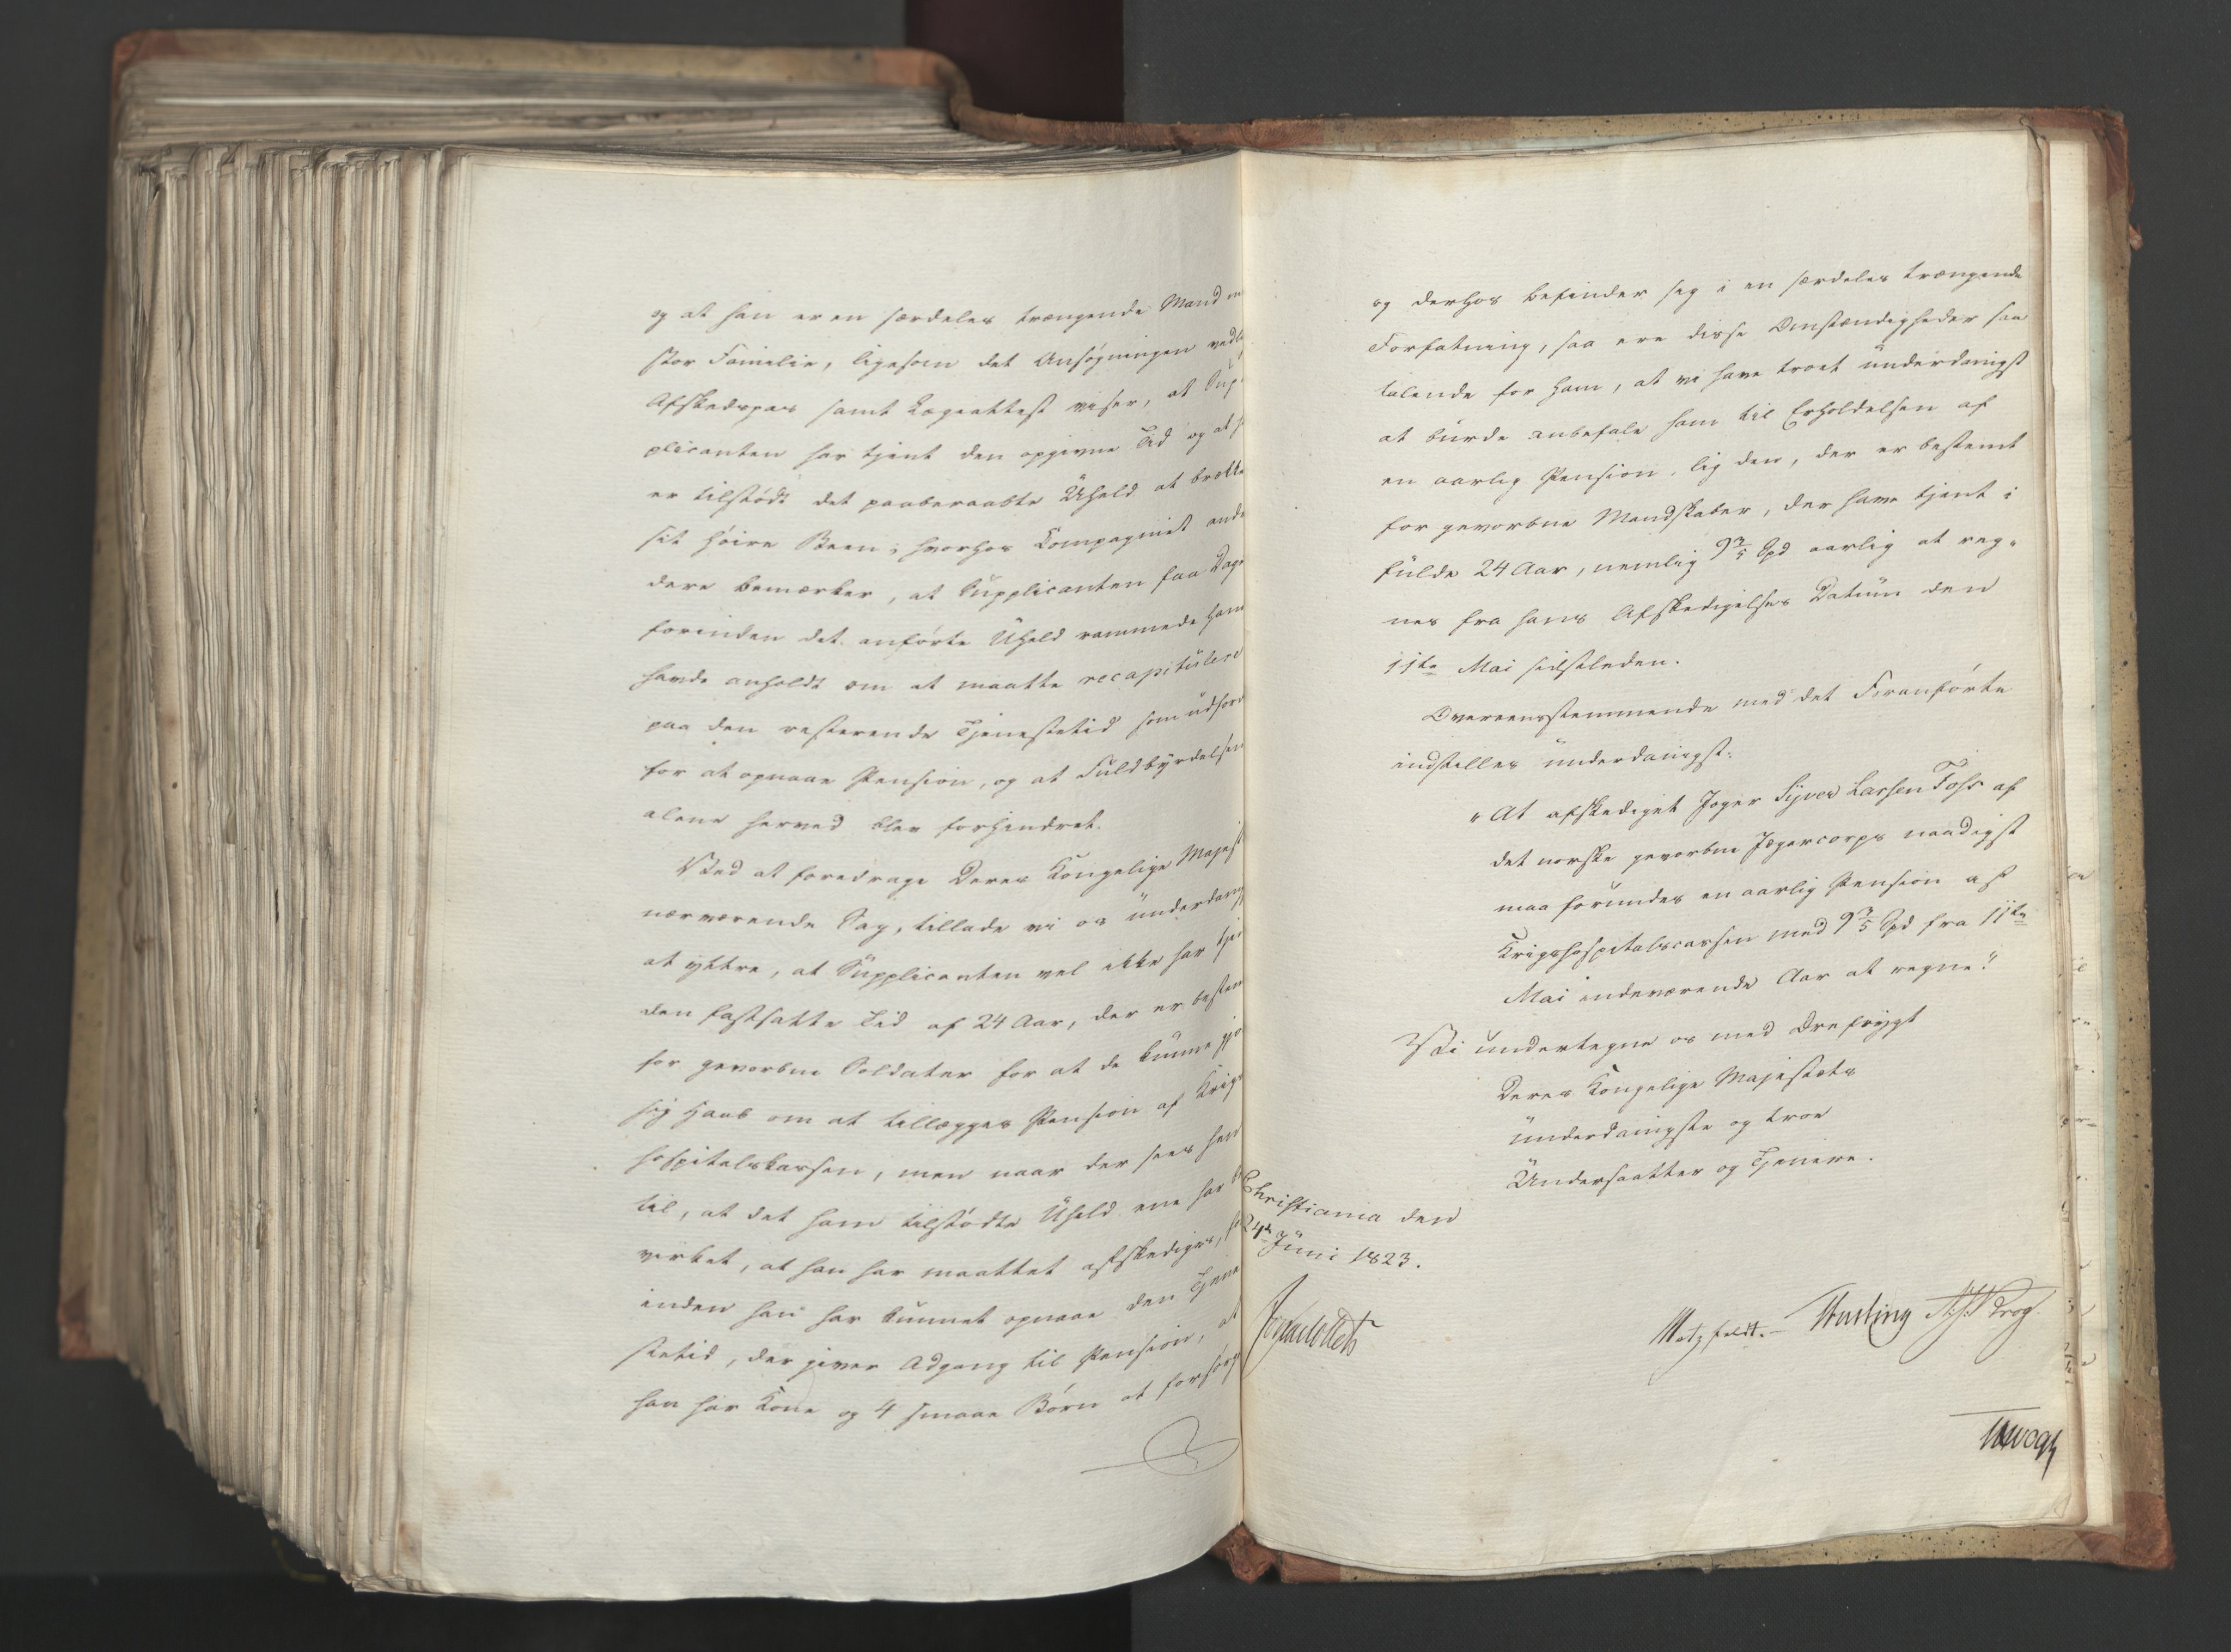 og at han er en særdeles trængende Mand
stor Familie, ligesom det Ansøgningen
Afskedspas samt Lægeattest viser, at Sup-
plicanten har tjent den opgivne Tid og at
er tilstødt det paaberaabte Uheld at brække
sit høire Been; hvorhos Compagniet
dere bemærker, at Supplicanten faa Dage
forinden det anførte Uheld rammede ham
havde anholdt om at maatte recapitulere
paa den resterende Tjenestetid som
for at opnaae Pension, og at Fuldbyrdelsen
alene herved blev forhindret.
Ved at foredrage Deres Kongelige
nærværende Sag, tillade vi os
at yttre, at Supplicanten vel ikke har
den fastsatte Tid af 24 Aar, der er
for gevorbne Soldater for at de kunne
sig Haab om at tillægges Pension af
hospitalskassen, men naar der sees hen
til, at det ham tilstødte Uheld ene har
virket, at han har maattet afskediges,
inden han har kunnet opnaae den
stetid, der giver Adgang til Pension, at
han har Kone og 4 smaae Børn at
og derhos befinder sig i en særdeles trængende
Forfatning, saa ere disse Omstændigheder saa
talende for ham, at vi have troet underdanigst
at burde anbefale ham til Erholdelsen af
en aarlig Pension lig den, der er bestemt
for gevorbne Mandskaber, der have tjent i
fulde 24 Aar, nemlig 9 3/5 Spd aarlig at reg-
nes fra hans Afskedigelses Datum den
11te Mai sidstleden.
Overeensstemmende med det Foranførte
indstilles underdanigst:
"At afskediget Jæger Syver Larsen Foss af
det norske gevorbne Jægercorps naadigst
maa forundes en aarlig Pension af
Krigshospitalscassen med 9 3/5 Spd fra 11te
Mai indeværende Aar at regne."
Vi undertegne os med Ærefrygt
Deres Kongelige Majestæts
underdanigste og troe
Undersaatter og Tjenere.
Christiania den
24de Juni 1823.
Motzfeldt.